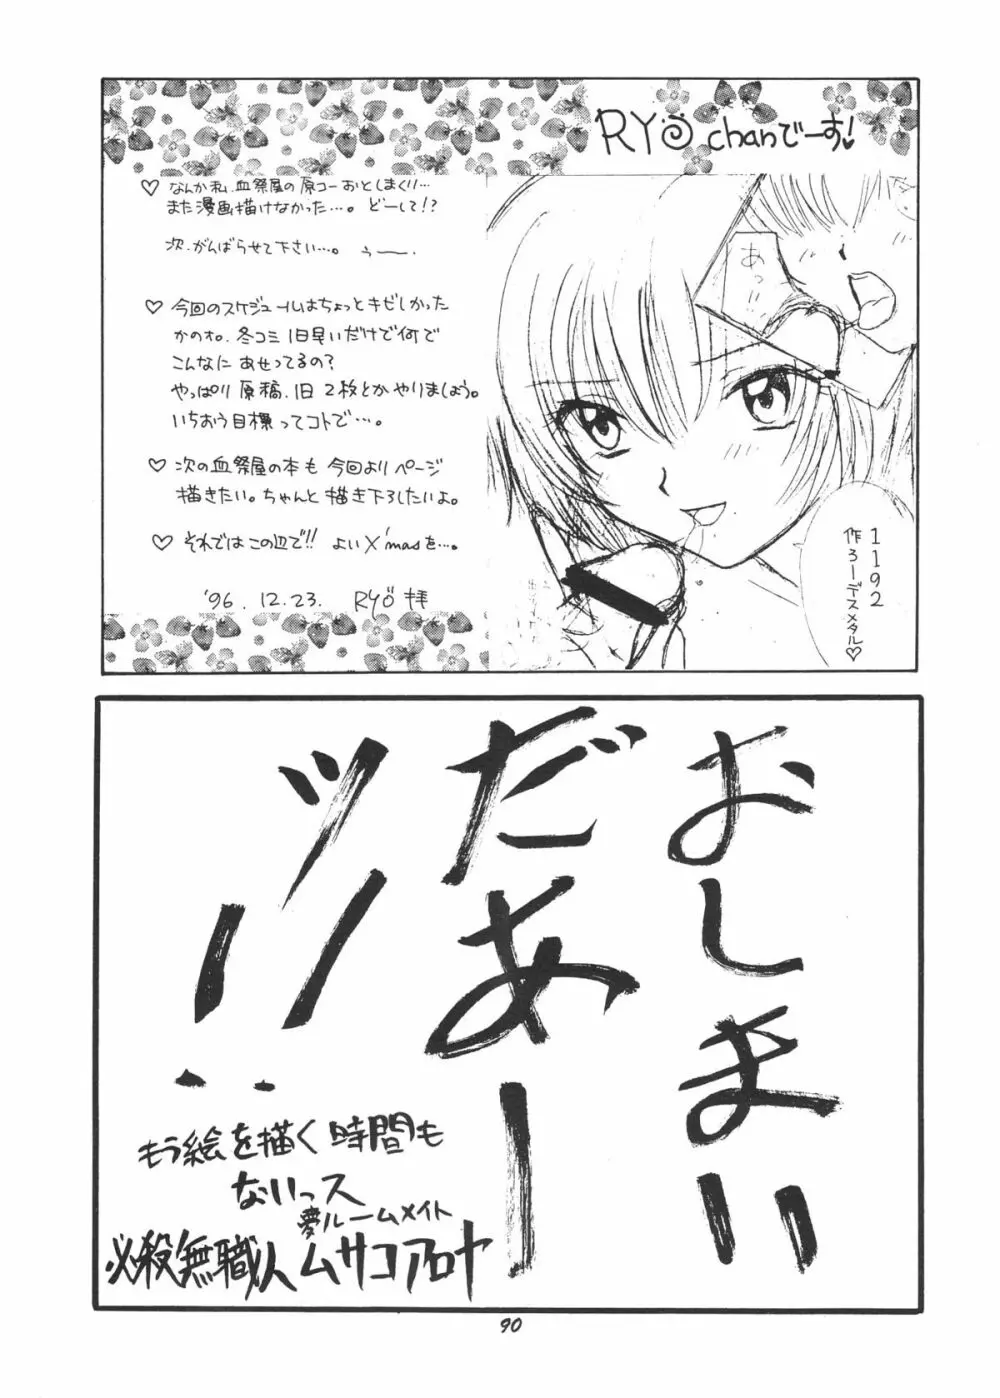 RYO chanでーす!
♡ なんか私、血祭屋の原コーおとしまくり…
また漫画描けなかった…。どーして!?
次、がんばらせて下さい…。 うー.
♡ 今回のスケジュールはちょっとキビしかった
かのオ。冬コミ1日早いだけで何で
こんなに あせってるの?
やっぱり 原稿、1日 2枚とかやりましょう。
いちおう目標ってコトで…。
♡ 次の血祭屋の本も 今回よりページ
描きたい。ちゃんと 描き下ろしたいよ。
♡ それでは この辺で!! よいX'masを…。
'96. 12. 23. RYO 拝
あっ
1192
作ろーデスメタル♡
おしまい
だあー
ッ!!
もう絵を描く時間も
ないっス
夢ルームメイト
必殺無職人ムサコアロヤ
90